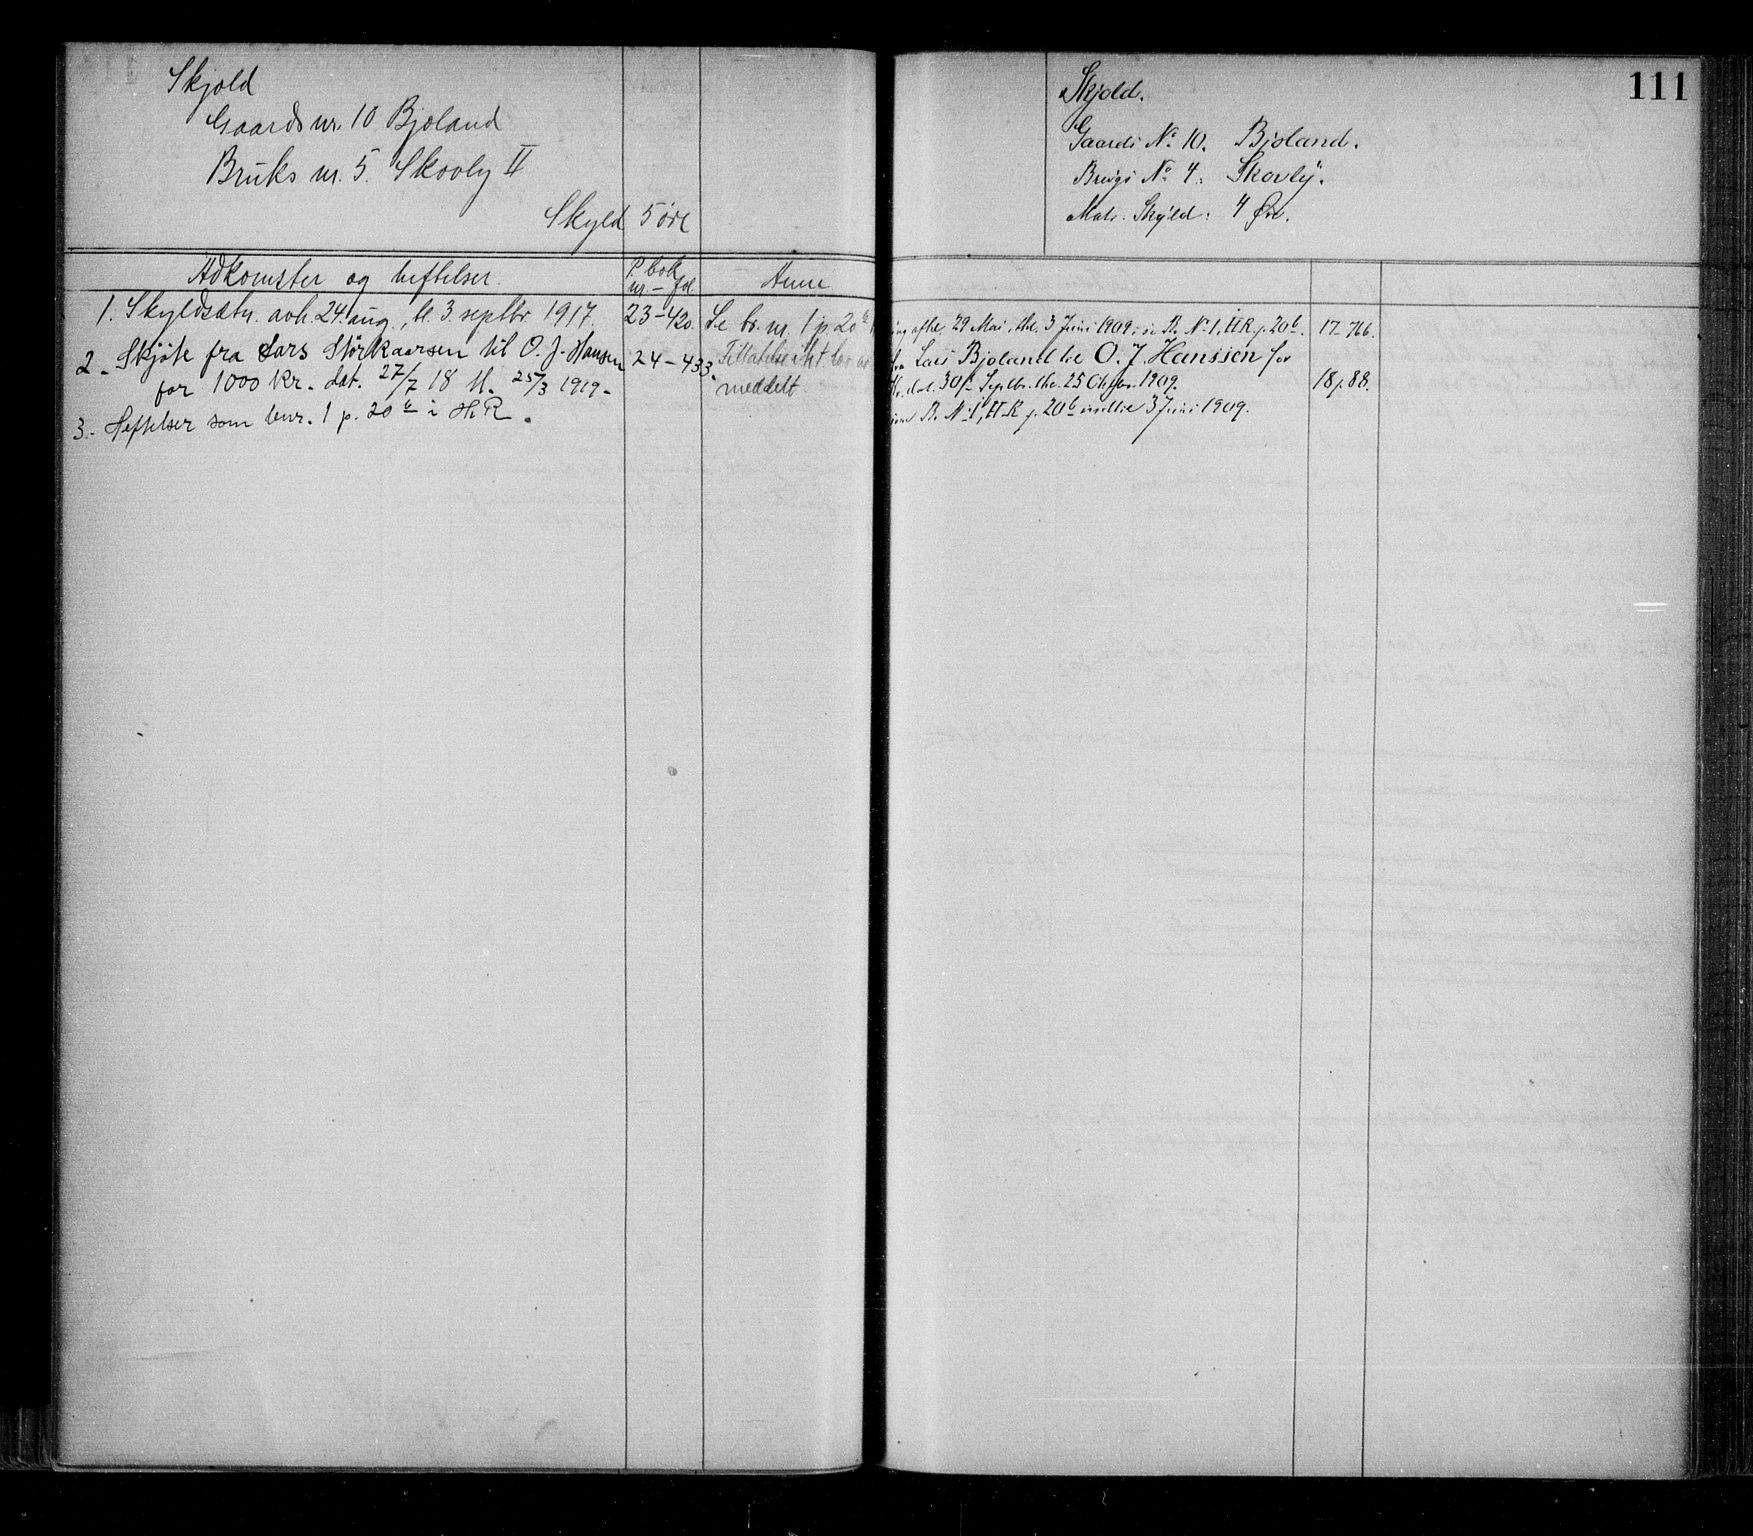 Skjold
Gaards nr. 10 Bjoland
Bruks nr. 5. Skovly II
Skyld 5 öre
Adkomster og heftelser.
P. bok
nr. – fol.
Anm.
1. Skyldsætn. avh. 24. aug., tl. 3. septbr 1917.
23–420.
Se br. nr. 1 p. 20b
2. Skjöte fra Lars Störkaarsen til O. J. Hansen
24–433.
Tillatelse ikke
for 1000 Kr. dat. 27/7 18 tl. 25/3 1919.
meddelt
3. Heftelser som bnr. 1 p. 20b i H.R.
111
Skjold.
Gaards No 10. Bjoland.
Brugs No 4: Skovly.
Matr. Skyld: 4 Øre.
afh. 29 Mai, thl. 3 Juni 1909, se B. No 1, H R p. 20b.
17–766.
fra Lars Bjoland til O. J. Hanssen for
Kr. dat. 30te Septbr. thl. 25 Oktbr. 1909.
18 p. 88.
som B. No 1, H R p. 20b indtil 3 Juni 1909.